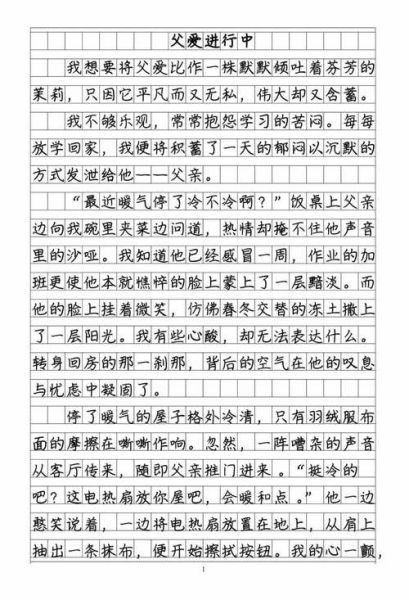 父爱进行中
我想要将父爱比作一株默默倾吐着芬芳的
茉莉，只因它平凡而又无私，伟大却又含蓄。
我不够乐观，常常抱怨学习的苦闷。每每
放学回家，我便将积蓄了一天的郁闷以沉默的
方式发泄给他——父亲。
“最近暖气停了冷不冷啊？”饭桌上父亲
边向我碗里夹菜边问道，热情却掩不住他声音
里的沙哑。我知道他已经感冒一周，作业的加
班更使他本就憔悴的脸上蒙上了一层黯淡。而
他的脸上挂着微笑，仿佛春冬交替的冻土撒上
了一层阳光。我有些心酸，却无法表达什么。
转身回房的那一刹那，背后的空气在他的叹息
与忧虑中凝固了。
停了暖气的屋子格外冷清，只有羽绒服布
面的摩擦在嘶嘶作响。忽然，一阵嘈杂的声音
从客厅传来，随即父亲推门进来。“挺冷的
吧？这电热扇放你屋吧，会暖和点。”他一边
憨笑说着，一边将电热扇放置在地上，从肩上
抽出一条抹布，便开始擦拭按钮。我的心一颤，
1